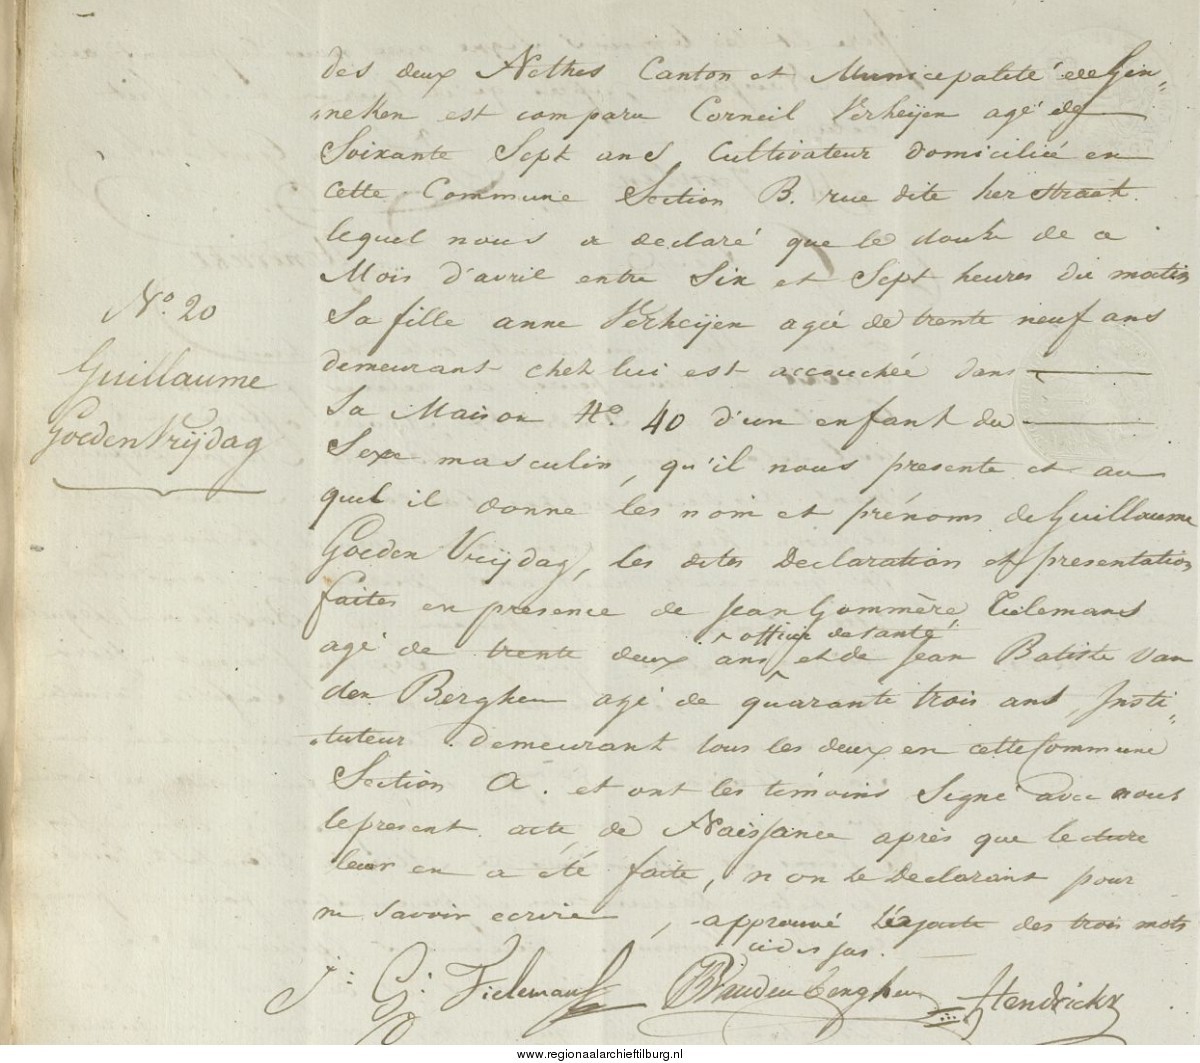 des deux Nethes Canton et Municipalité de Gin„
„neken est comparu Corneil Verheijen agé de
Soixante Sept ans, Cultivateur domicilié en
cette Commune Section B. rue dite herstraat.
lequel nous a declaré que le douze de ce
Mois d'avril entre Six et Sept heures du matin
Sa fille anne Verheijen agée de trente neuf ans
demeurant chez lui est accouchée dans
Sa Maison No. 40 d'un enfant du
Sexe masculin, qu'il nous presente et au
quel il donne les nom et prénoms de Guillaume
Goeden Vrijdag, les dites Declaration et presentation
faites en presence de Jean Gommère Tielemans
agé de trente deux ans ^ officier de santé ^ et de Jean Batiste van
den Berghen agé de quarante trois ans, Insti„
„tuteur. demeurant tous les deux en cette Commune
Section A. et ont les témoins Signé avec nous
le present acte de Naissance après que lecture
leur en a été faite, non le Declarant pour
ne savoir ecrire, approuvé l'ajoute des trois mots
ci des sus.
J: G: Tielemans BVanden Berghen Hendrickx
No. 20
Guillaume
Goeden Vrijdag
www.regionaalarchieftilburg.nl